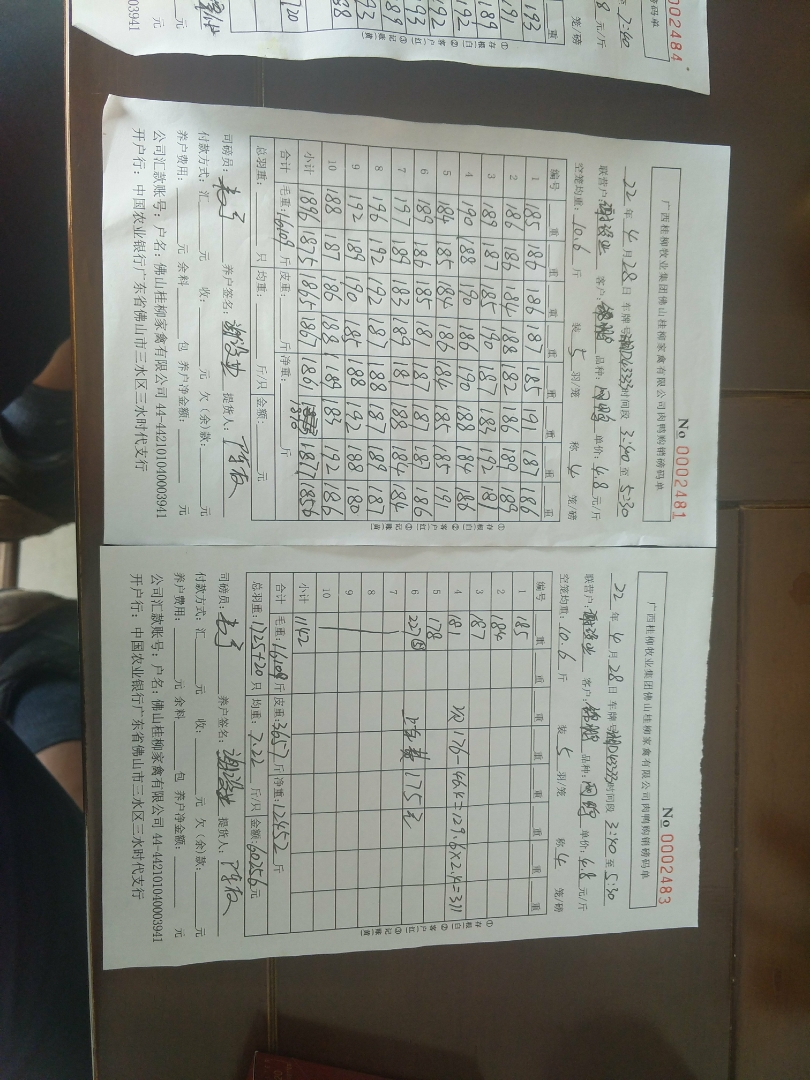 0002484
2:40
8 元/斤
笼/磅
广西桂柳牧业集团佛山桂柳家禽有限公司肉鸭购销磅码单
No 0002481
22 年 4 月 28 日 车牌号 时间段 3:40 至 5:30
联营户: 客户: 品种: 单价: 4.8 元/斤
空笼均重: 10.6 斤 装 5 羽/笼 称 4 笼/磅
编号 重 重 重 重 重 重 重 重
1 185 186 186 187 185 191 187 186
2 186 186 184 188 182 186 189 189
3 189 187 185 190 187 184 192 181
4 190 188 190 186 190 188 184 186
5 184 185 184 186 184 185 185 191
6 189 186 185 181 187 187 187 186
7 197 189 183 189 181 188 184 184
8 196 192 192 187 188 187 189 187
9 192 189 190 185 188 192 188 180
10 188 187 186 188 189 189 192 186
小计 1896 1875 1865 1867 1861 1876 1877 1856
合计 毛重: 16109 斤 皮重: 斤 净重: 斤
总羽重: 只 均重: 斤/只 金额: 元
司磅员: 养户签名: 提货人:
付款方式: 汇 元 收: 元 欠(余)款: 元
养户费用: 元 余料 包 养户净金额: 元
公司汇款账号: 户名: 佛山桂柳家禽有限公司 44-442101040003941
开户行: 中国农业银行广东省佛山市三水区三水时代支行
①存根(白) ②客户(红) ③记账(黄)
广西桂柳牧业集团佛山桂柳家禽有限公司肉鸭购销磅码单
No 0002483
22 年 4 月 28 日 车牌号 时间段 3:40 至 5:30
联营户: 客户: 品种: 单价: 4.8 元/斤
空笼均重: 10.6 斤 装 5 羽/笼 称 4 笼/磅
编号 重 重 重 重 重 重 重 重
1 185
2 184
3 187
4 181 176-46.4=129.6×2.4=311
5 178
6 227⑤ 175元
7
8
9
10
小计 1142
合计 毛重: 16109 斤 皮重: 3657 斤 净重: 12452 斤
总羽重: 1725+20 只 均重: 7.22 斤/只 金额: 60256 元
司磅员: 养户签名: 提货人:
付款方式: 汇 元 收: 元 欠(余)款: 元
养户费用: 元 余料 包 养户净金额: 元
公司汇款账号: 户名: 佛山桂柳家禽有限公司 44-442101040003941
开户行: 中国农业银行广东省佛山市三水区三水时代支行
①存根(白) ②客户(红) ③记账(黄)